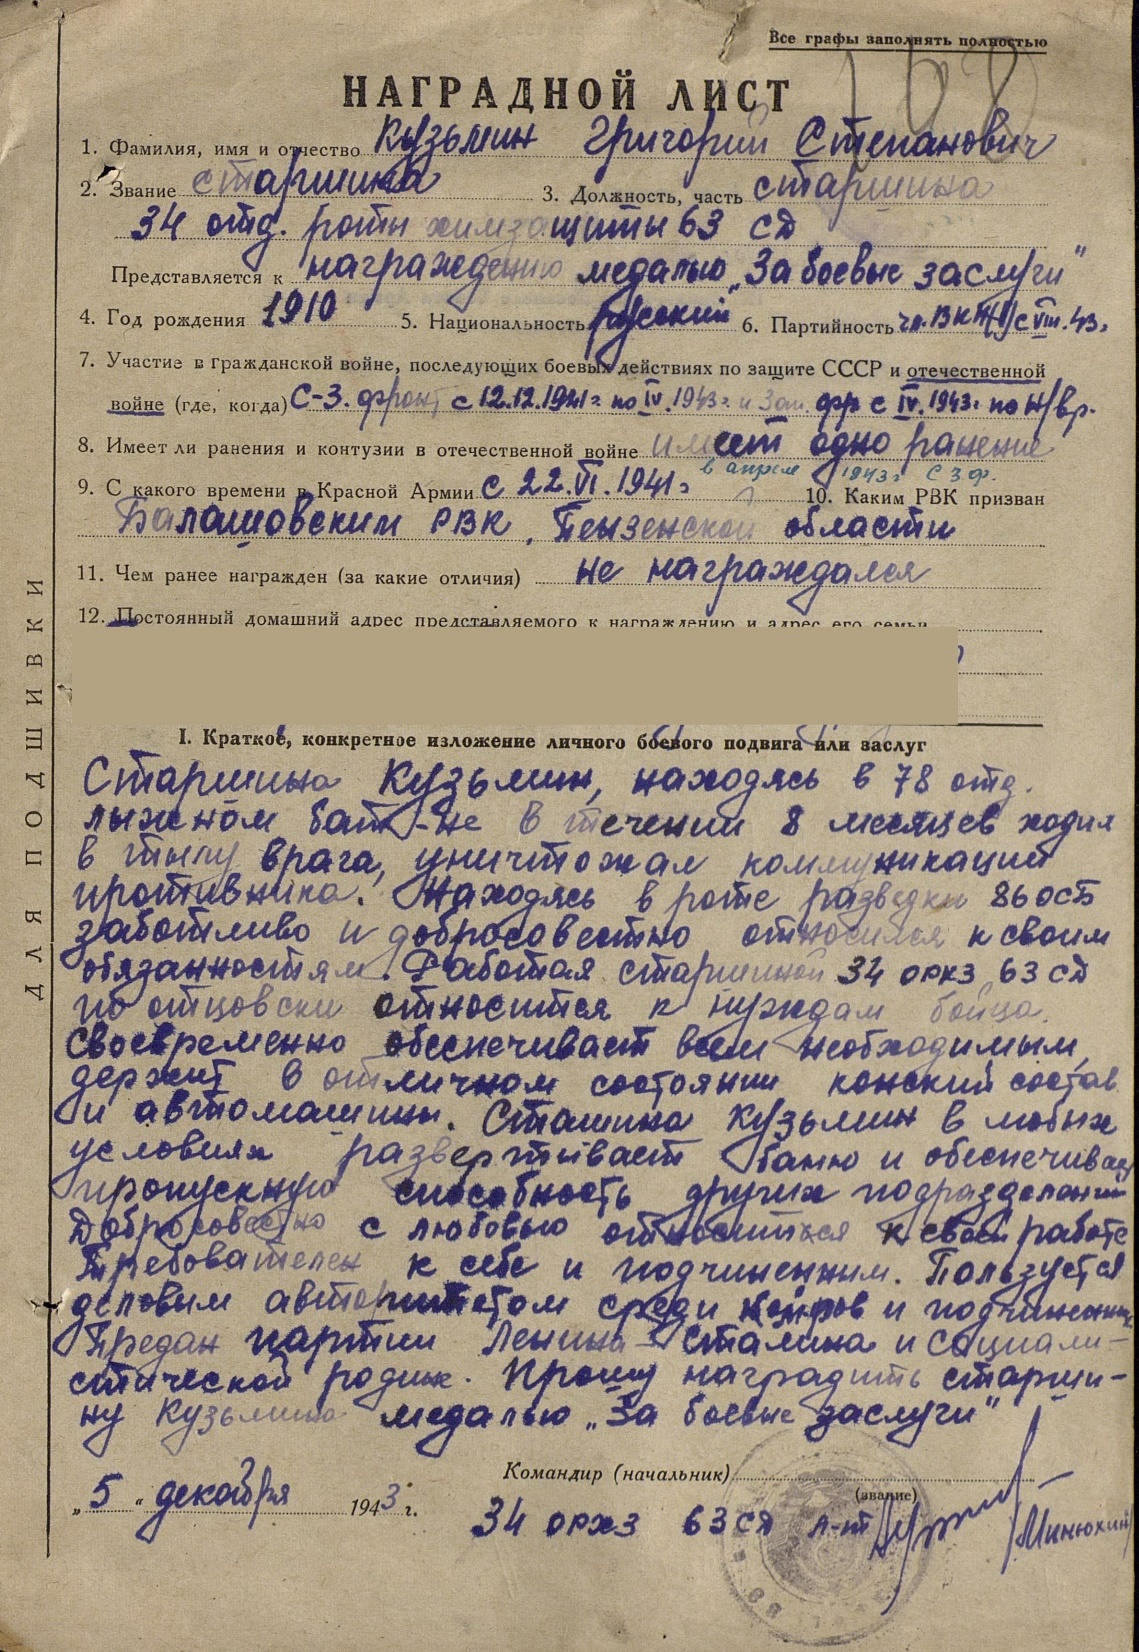 Все графы заполнять полностью
168
НАГРАДНОЙ ЛИСТ
1. Фамилия, имя и отчество Кузьмин Григорий Степанович
2. Звание старшина 3. Должность, часть старшина
34 отд. роты химзащиты 63 сд
Представляется к награждению медалью „За боевые заслуги"
4. Год рождения 1910 5. Национальность русский 6. Партийность чл. ВКП(б) с VIII. 43г
7. Участие в гражданской войне, последующих боевых действиях по защите СССР и отечественной
войне (где, когда) С-З. фронт с 12.12.1941г по IV. 1943г и Зап. фр с IV. 1943г по н/вр.
8. Имеет ли ранения и контузии в отечественной войне имеет одно ранение
в апреле 1943г СЗФ.
9. С какого времени в Красной Армии с 22.VI.1941г 10. Каким РВК призван
Балашовским РВК, Пензенской области
11. Чем ранее награжден (за какие отличия) не награждался
12. Постоянный домашний адрес представляемого к награждению и адрес его семьи
I. Краткое, конкретное изложение личного боевого подвига или заслуг
Старшина Кузьмин, находясь в 78 отд.
лыжном бат-не в течении 8 месяцев ходил
в тылу врага, уничтожал коммуникации
противника. Находясь в роте разведки 86 осб
заботливо и добросовестно относился к своим
обязанностям. Работая старшиной 34 орхз 63 сд
по отцовски относится к нуждам бойца.
Своевременно обеспечивает всем необходимым,
держит в отличном состоянии конский состав
и автомашины. Сташина Кузьмин в любых
условиях развертывает баню и обеспечивает
пропускную способность других подразделений
Добросовестно с любовью относится к своей работе
Требователен к себе и подчиненным. Пользуется
деловым авторитетом среди ком-ров и подчиненных
Предан партии Ленина-Сталина и социали-
стической родине. Прошу наградить старши-
ну Кузьмина медалью „За боевые заслуги"
Командир (начальник)
(звание)
„5" декабря 1943 г.
34 орхз 63 сд л-т /Минюхин/
ДЛЯ ПОДШИВКИ